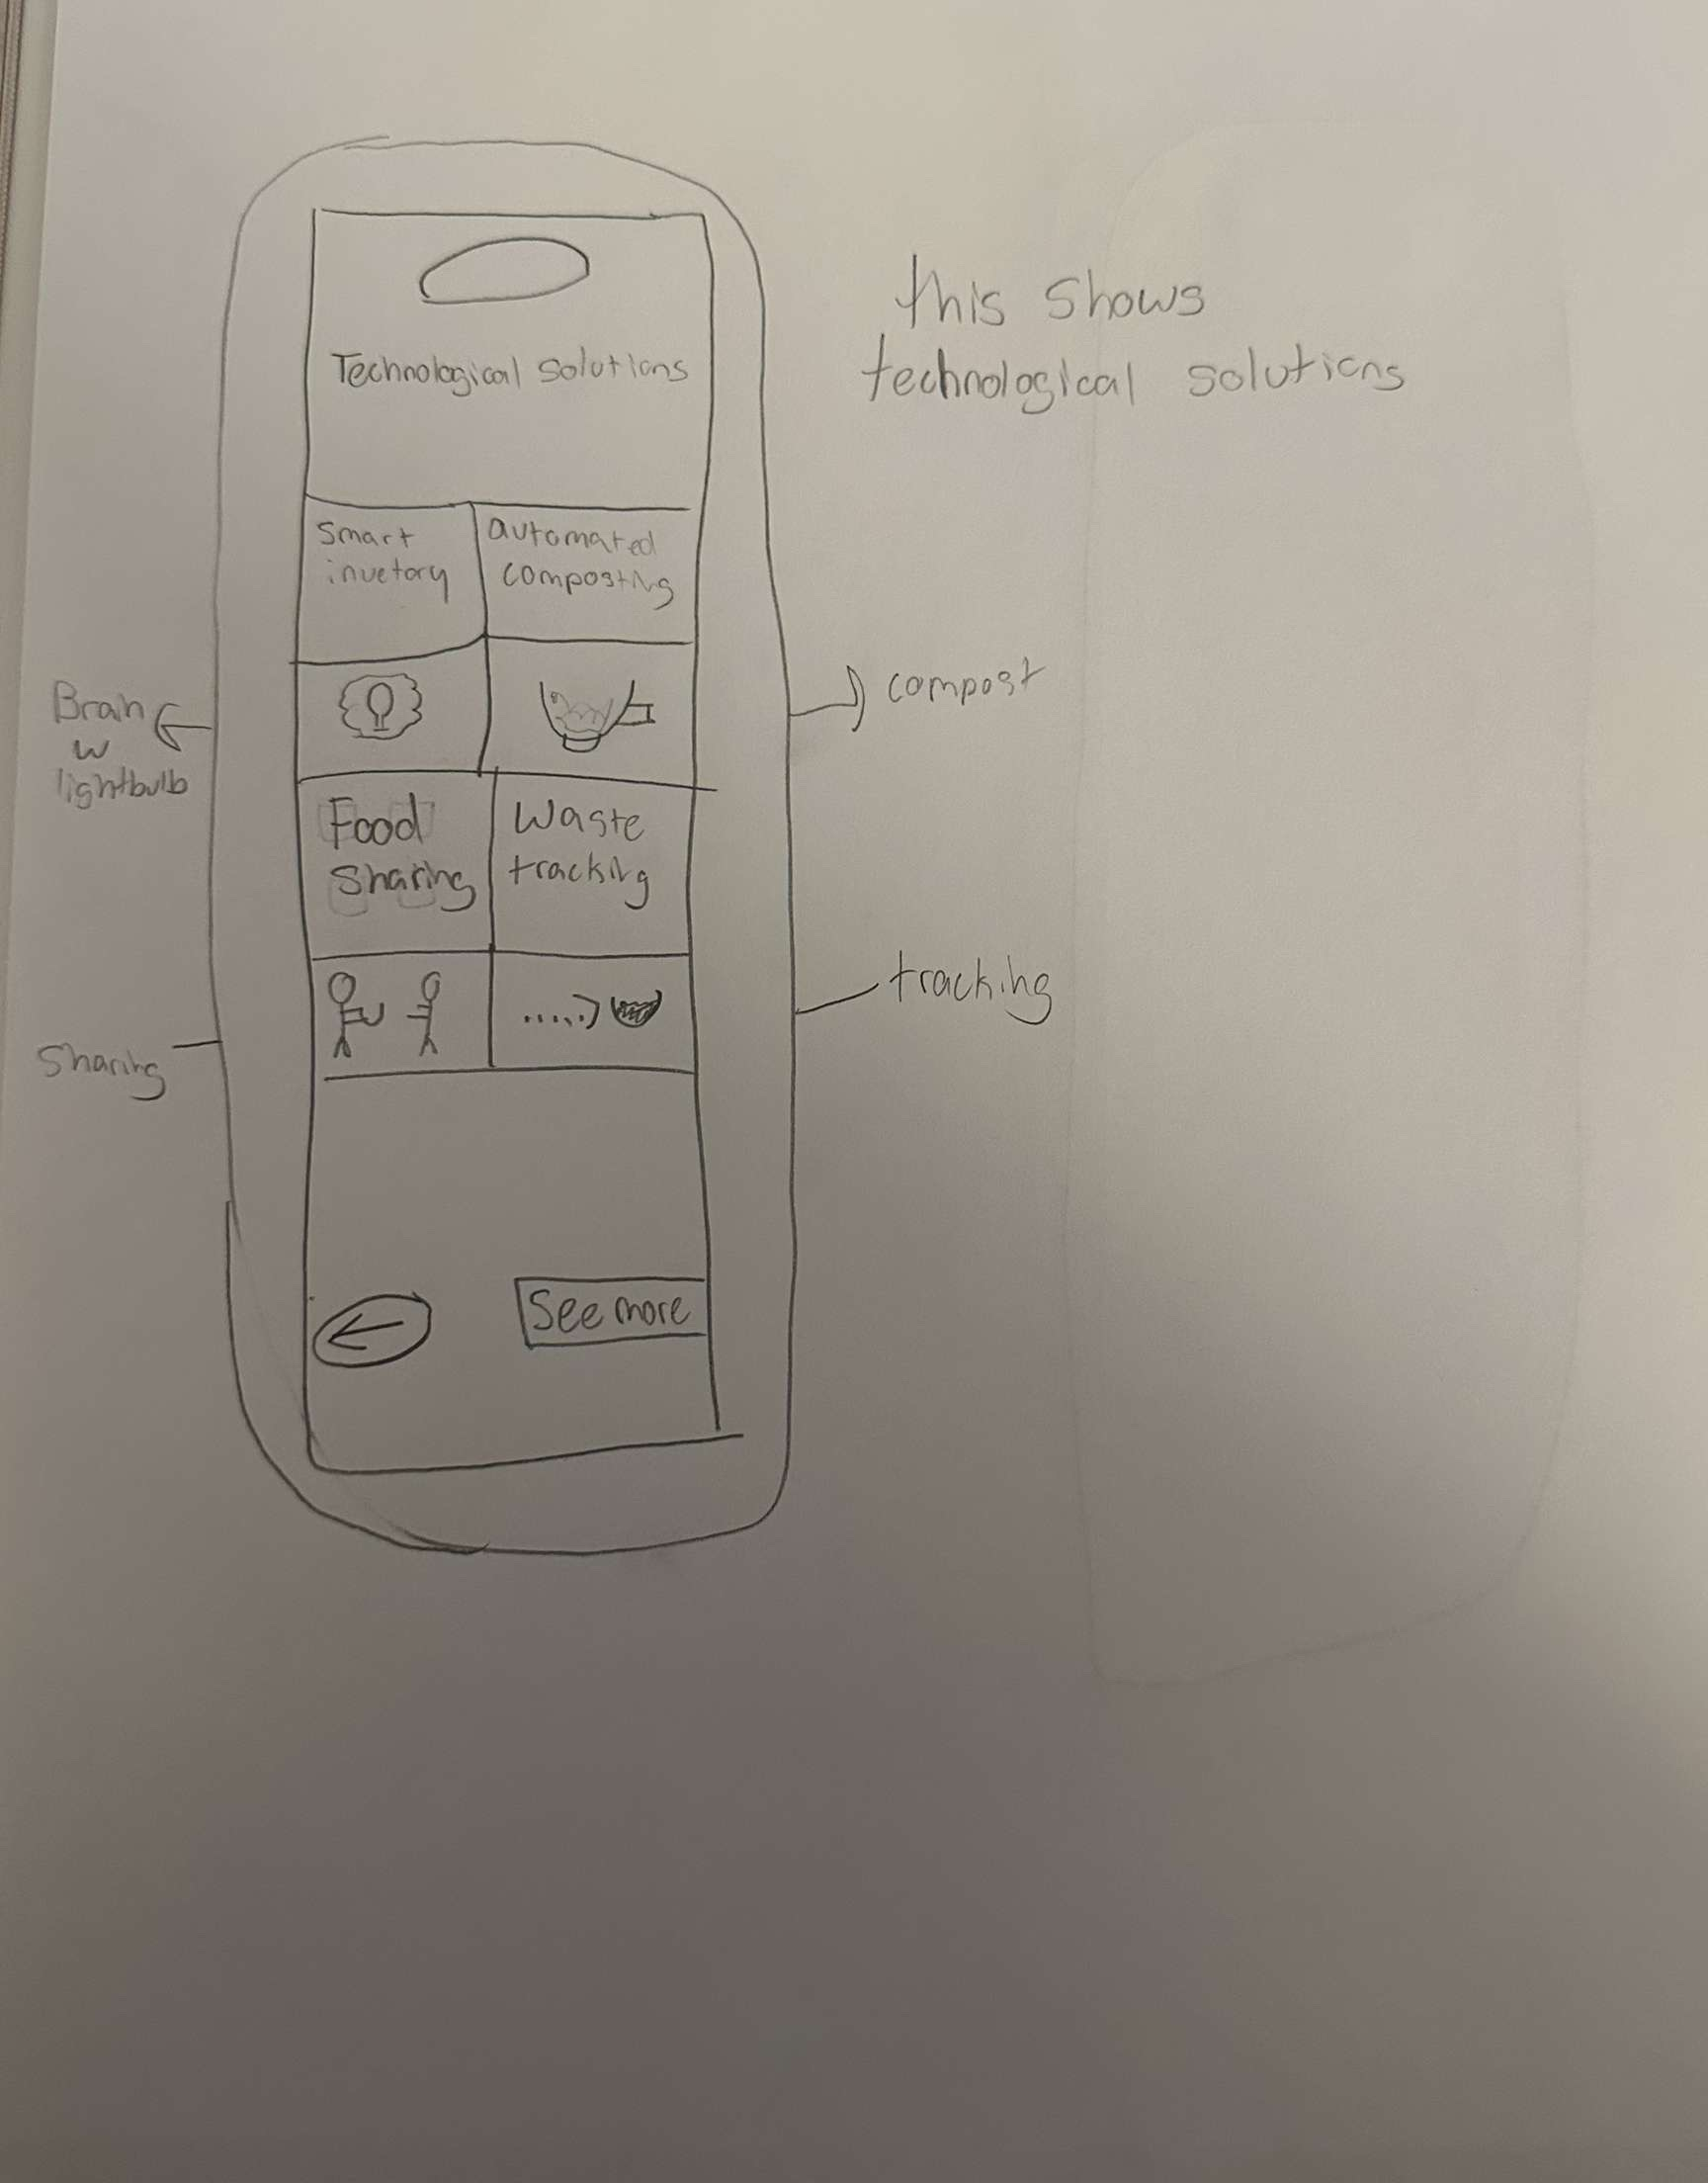 this shows
technological solutions
Technological solutions
Smart
invetory
automated
composting
Brain
w
lightbulb
compost
Food
Sharing
Waste
tracking
tracking
Sharing
See more